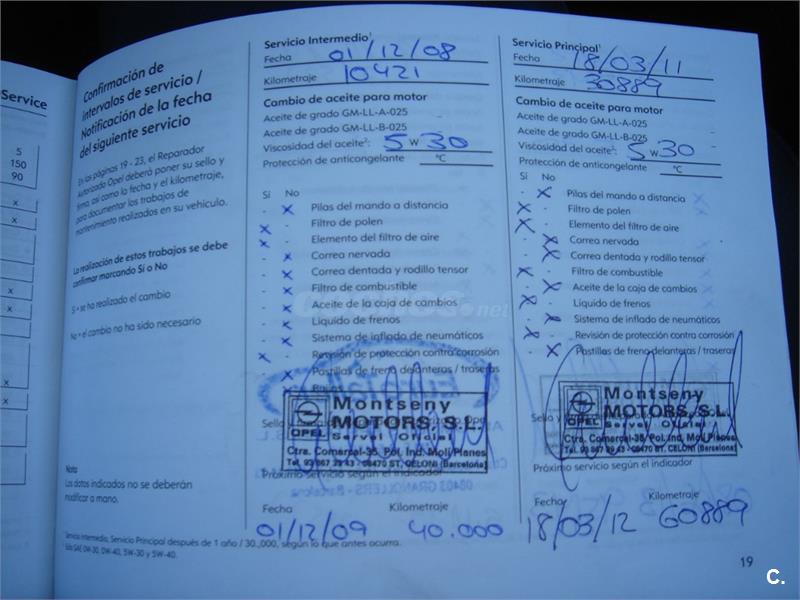 Service
5
150
90
x
x
x
x
x
x
Confirmación de
intervalos de servicio /
Notificación de la fecha
del siguiente servicio
En las páginas 19 - 23, el Reparador
Autorizado Opel deberá poner su sello y
firma, así como la fecha y el kilometraje,
para documentar los trabajos de
mantenimiento realizados en su vehículo.
La realización de estos trabajos se debe
confirmar marcando Sí o No
Sí = se ha realizado el cambio
No = el cambio no ha sido necesario
Nota
Los datos indicados no se deberán
modificar a mano.
Servicio Intermedio¹
Fecha 01/12/08
Kilometraje 10421
Cambio de aceite para motor
Aceite de grado GM-LL-A-025
Aceite de grado GM-LL-B-025
Viscosidad del aceite²: 5 W 30
Protección de anticongelante °C
Sí No
x Pilas del mando a distancia
x Filtro de polen
x Elemento del filtro de aire
x Correa nervada
x Correa dentada y rodillo tensor
x Filtro de combustible
x Aceite de la caja de cambios
x Líquido de frenos
x Sistema de inflado de neumáticos
x Revisión de protección contra corrosión
x Pastillas de freno delanteras / traseras
OPEL
Montseny
MOTORS, S.L.
Servei Oficial
Ctra. Comarcal-35, Pol. Ind. Molí Planes
Tel. 93 867 39 43 - 08470 ST. CELONI (Barcelona)
Próximo servicio según el indicador
08403 GRANOLLERS - Barcelona
Fecha Kilometraje
01/12/09 40.000
Servicio Principal¹
Fecha 18/03/11
Kilometraje 30889
Cambio de aceite para motor
Aceite de grado GM-LL-A-025
Aceite de grado GM-LL-B-025
Viscosidad del aceite²: 5 W 30
Protección de anticongelante °C
Sí No
x Pilas del mando a distancia
x Filtro de polen
x Elemento del filtro de aire
x Correa nervada
x Correa dentada y rodillo tensor
x Filtro de combustible
x Aceite de la caja de cambios
x Líquido de frenos
x Sistema de inflado de neumáticos
x Revisión de protección contra corrosión
x Pastillas de freno delanteras / traseras
OPEL
Montseny
MOTORS, S.L.
Servei Oficial
Ctra. Comarcal-35, Pol. Ind. Molí Planes
Tel. 93 867 39 43 - 08470 ST. CELONI (Barcelona)
Próximo servicio según el indicador
Fecha Kilometraje
18/03/12 60889
¹ Servicio Intermedio, Servicio Principal después de 1 año / 30.000, según lo que antes ocurra.
² Sólo SAE 0W-30, 0W-40, 5W-30 y 5W-40.
19
C.